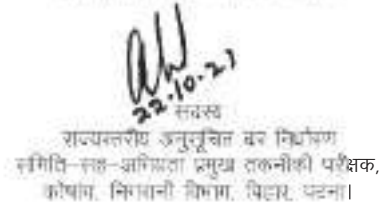 22.10.21
सदस्य
राज्यस्तरीय अनुसूचित दर निर्धारण
समिति-सह-अभियंता प्रमुख तकनीकी परीक्षक,
कोषांग, निगरानी विभाग, बिहार, पटना।